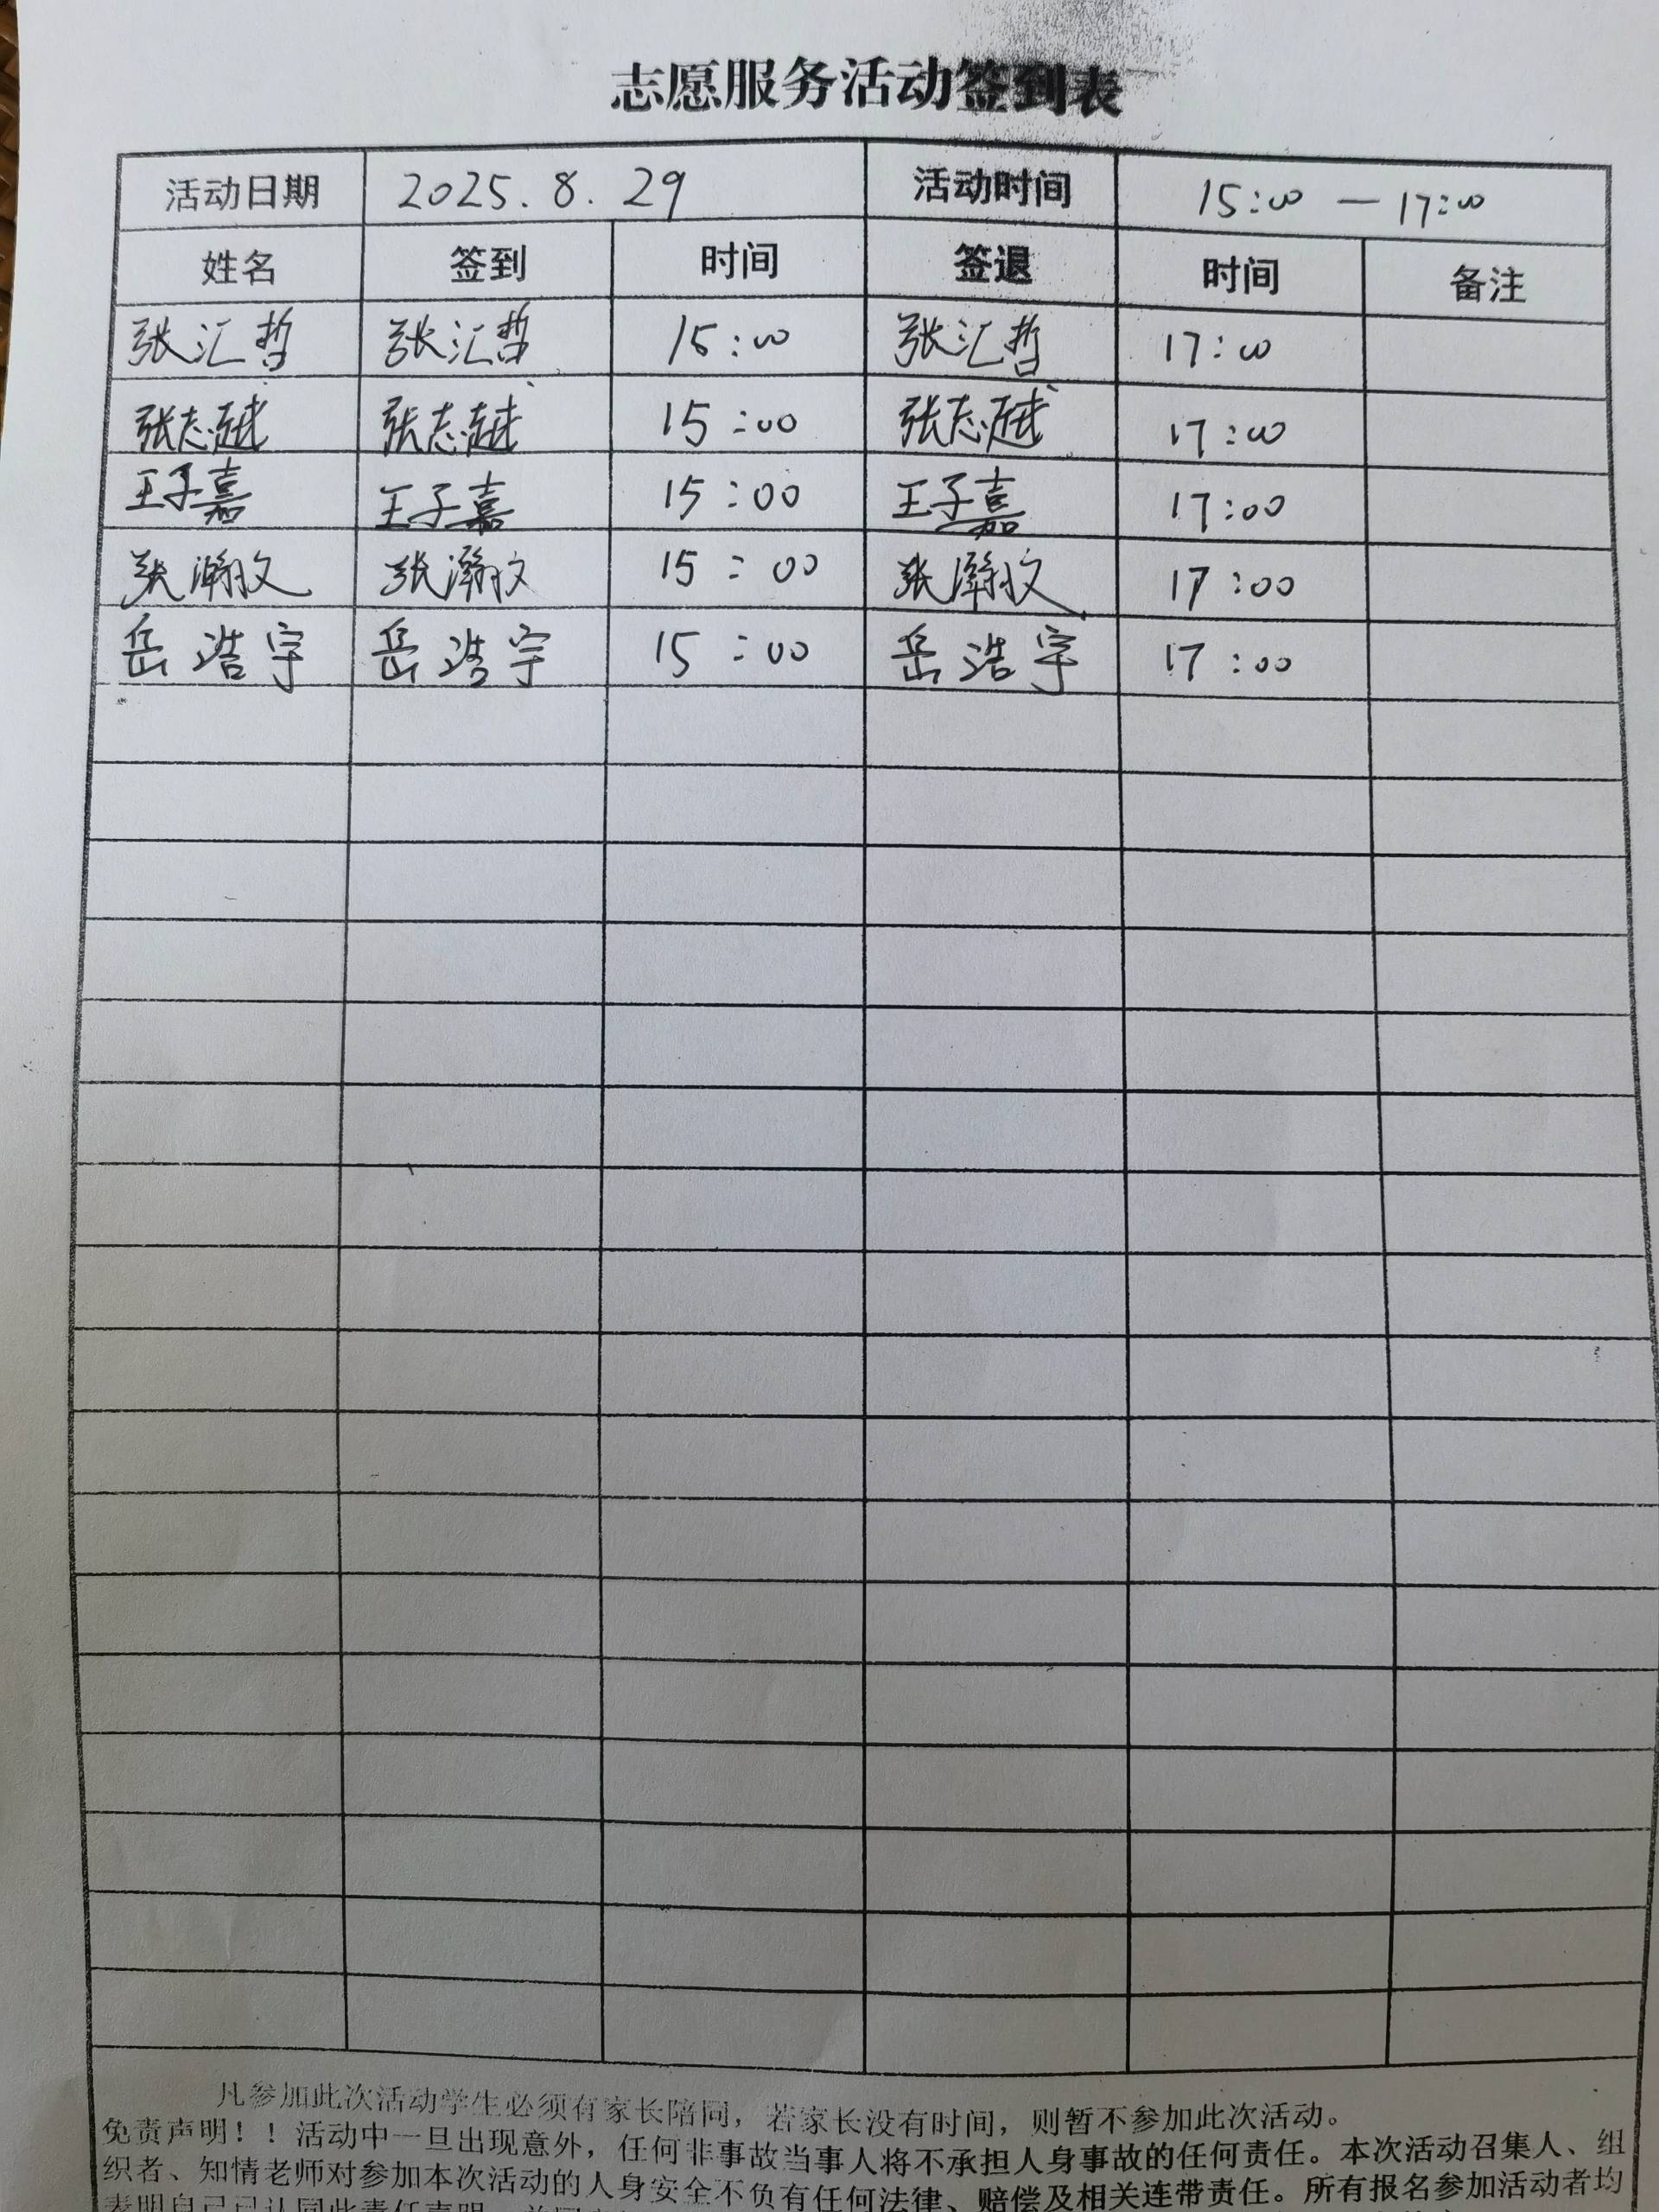 志愿服务活动签到表
活动日期 2025.8.29 活动时间 15:00 — 17:00
姓名 签到 时间 签退 时间 备注
张汇哲 张汇哲 15:00 张汇哲 17:00
张志越 张志越 15:00 张志越 17:00
王子嘉 王子嘉 15:00 王子嘉 17:00
张瀚文 张瀚文 15:00 张瀚文 17:00
岳浩宇 岳浩宇 15:00 岳浩宇 17:00
凡参加此次活动学生必须有家长陪同，若家长没有时间，则暂不参加此次活动。
免责声明！！活动中一旦出现意外，任何非事故当事人将不承担人身事故的任何责任。本次活动召集人、组
织者、知情老师对参加本次活动的人身安全不负有任何法律、赔偿及相关连带责任。所有报名参加活动者均
表明自己已认同此责任声明